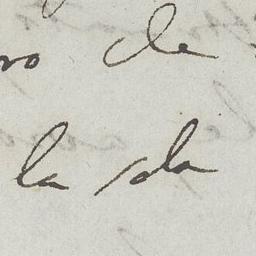 ro de
la sla